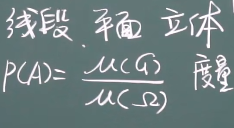 线段、平面 立体
P(A)= μ(G)/μ(Ω) 度量